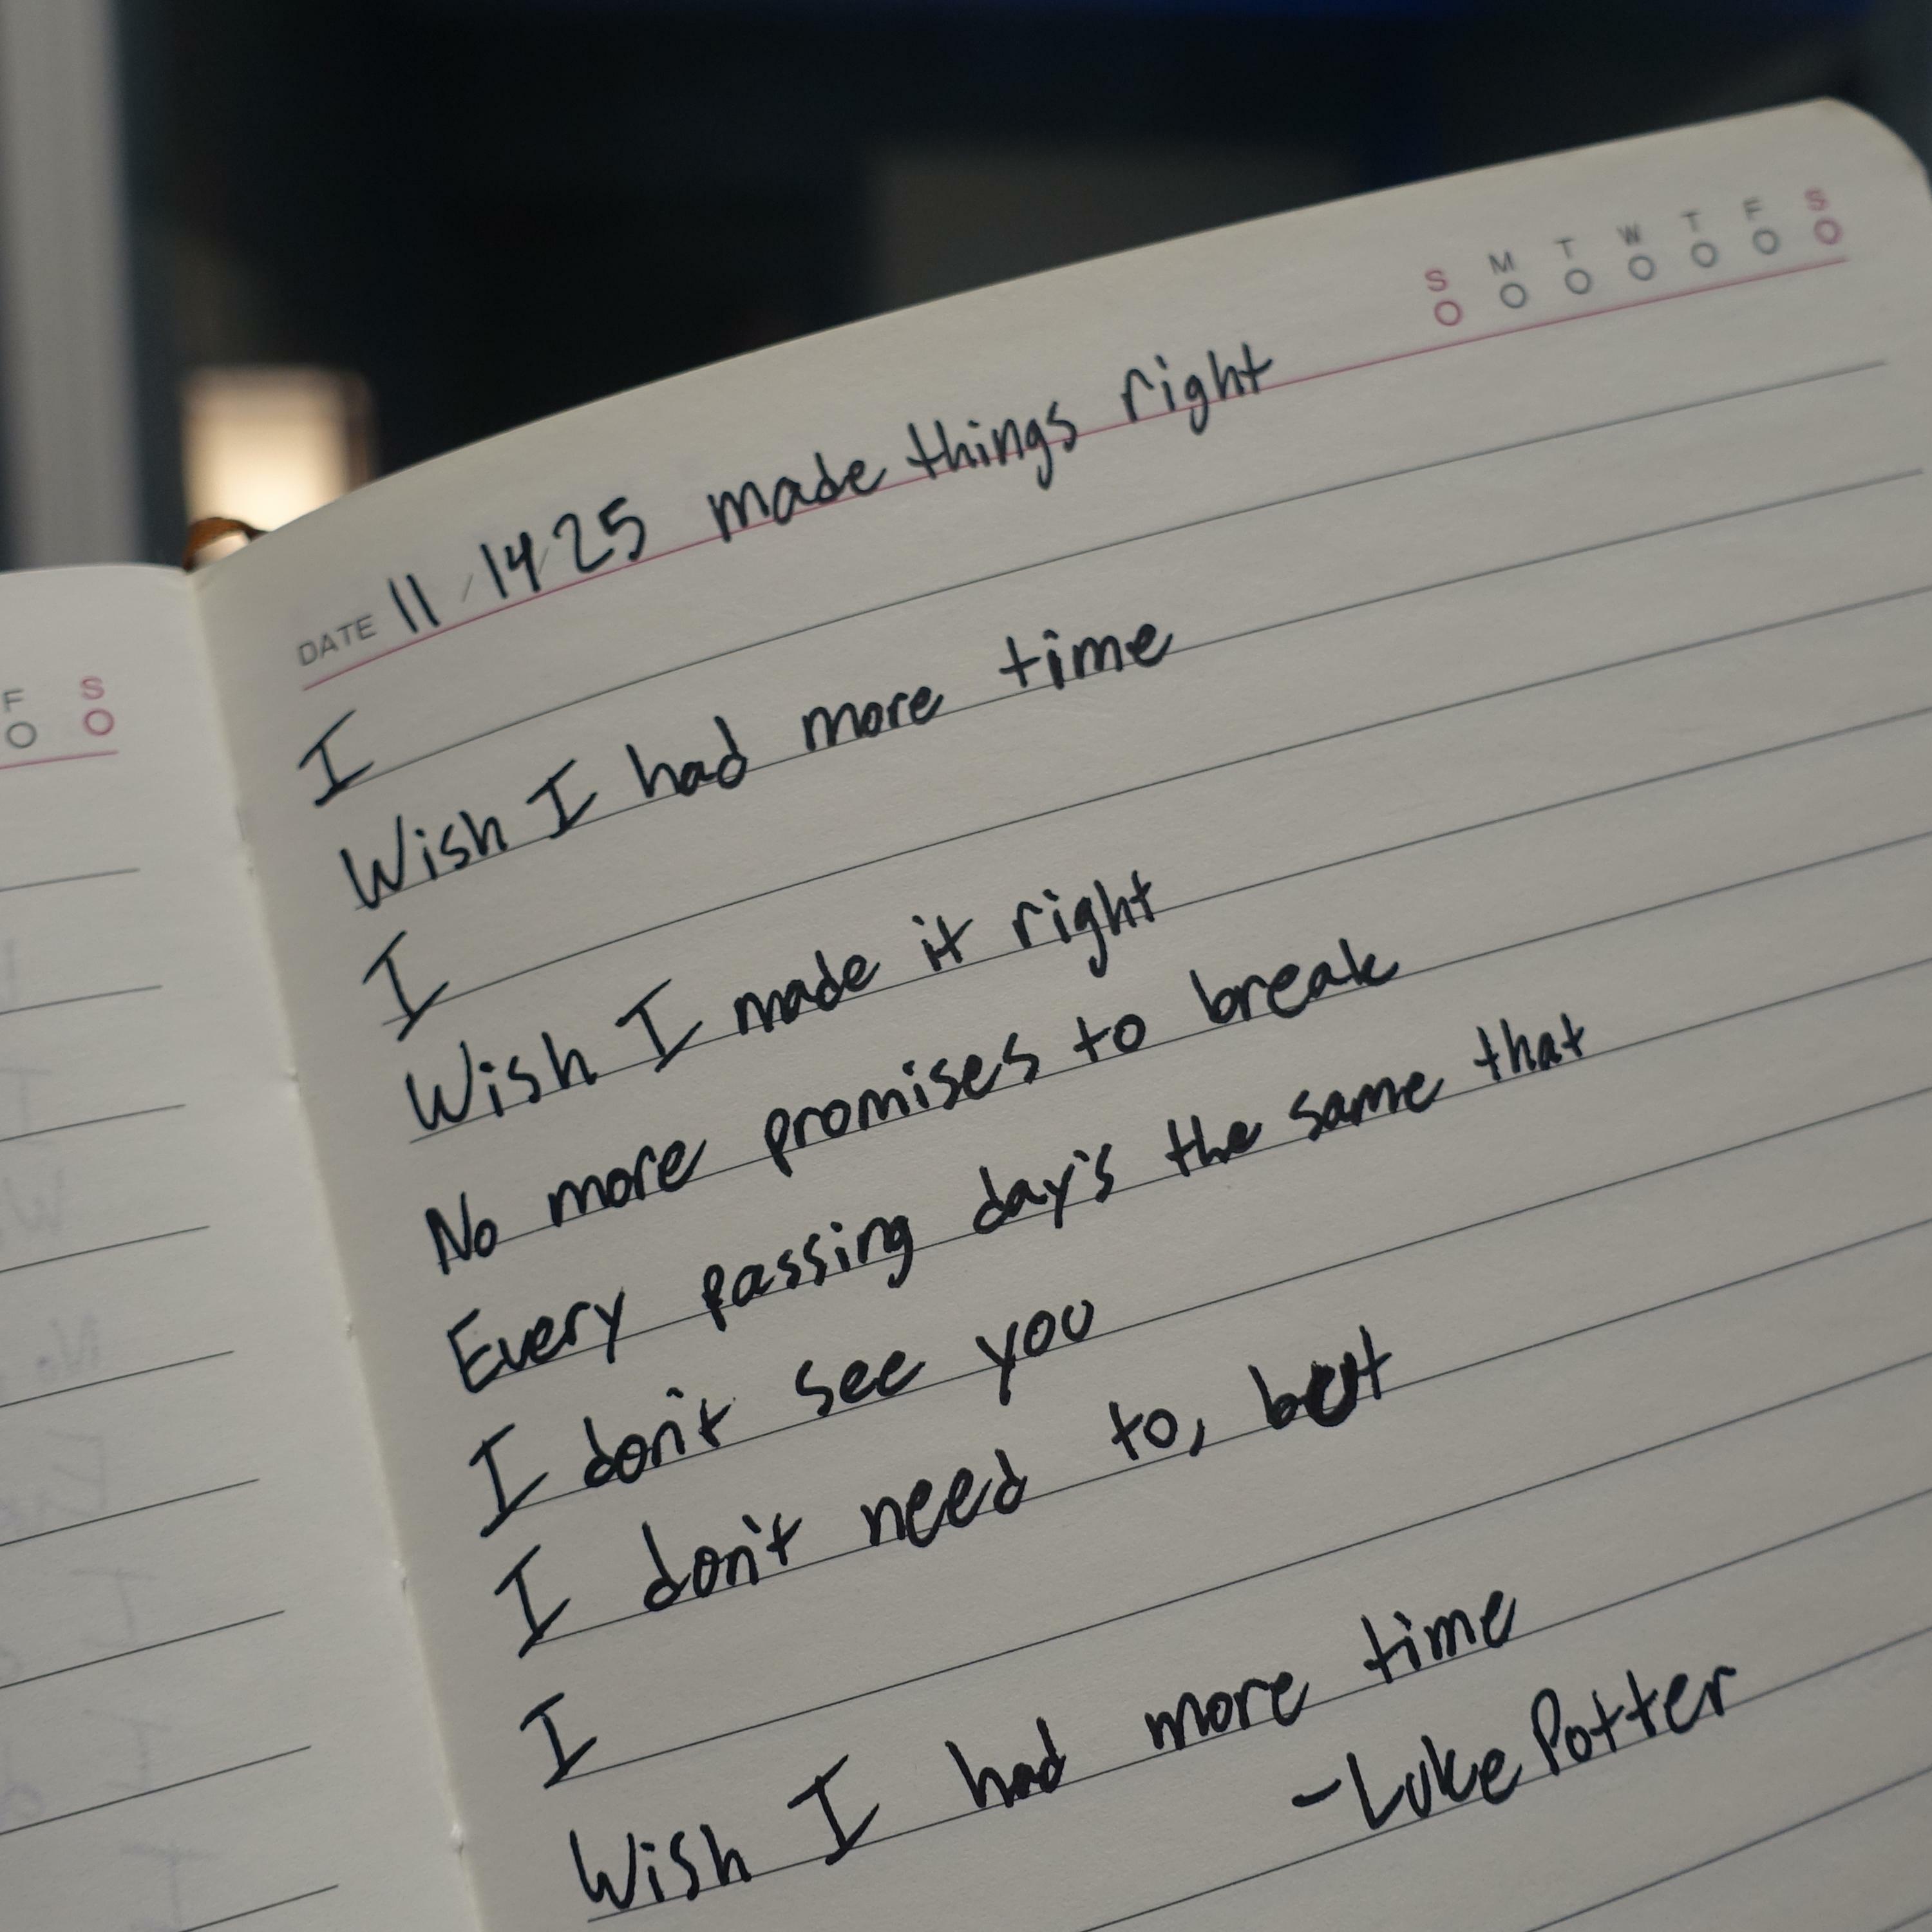 S M T W T F S
DATE 11/14/25 made things right
I
Wish I had more time
I
Wish I made it right
No more promises to break
Every passing day's the same that
I don't see you
I don't need to, but
I
Wish I had more time
-Luke Potter
F S